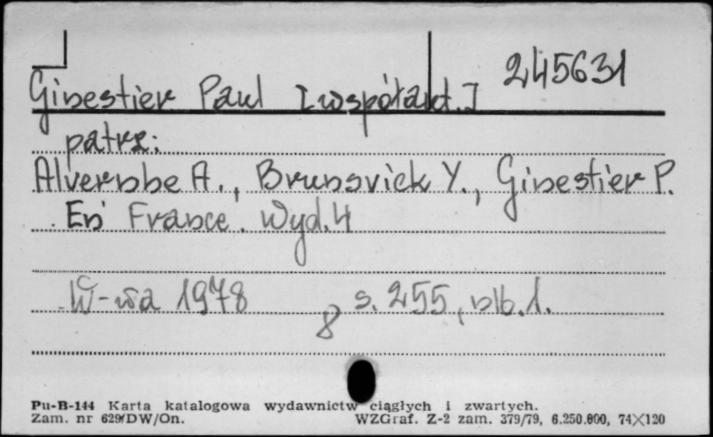 245631
Ginestier Paul [współakt.]
patrz:
Alvernhe A., Brunsvick Y., Ginestier P.
En France. Wyd. 4
W-wa 1978 8 s. 255, nlb. 1.
Pu-B-144 Karta katalogowa wydawnictw ciągłych i zwartych.
Zam. nr 629/DW/On. WZGraf. Z-2 zam. 379/79, 6.250.800, 74×120